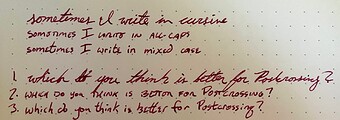 sometimes I write in cursive
SOMETIMES I WRITE IN ALL-CAPS
sometimes I write in mixed case
1. which do you think is better for Postcrossing?
2. WHICH DO YOU THINK IS BETTER FOR POSTCROSSING?
3. which do you think is better for Postcrossing?